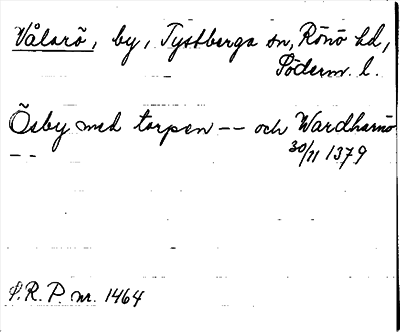 Vålarö, by, Tystberga sn, Rönö hd,
Söderm. l.
Ösby med torpen -- och Wardharnö
-- 30/11 1379
S.R.P. nr. 1464